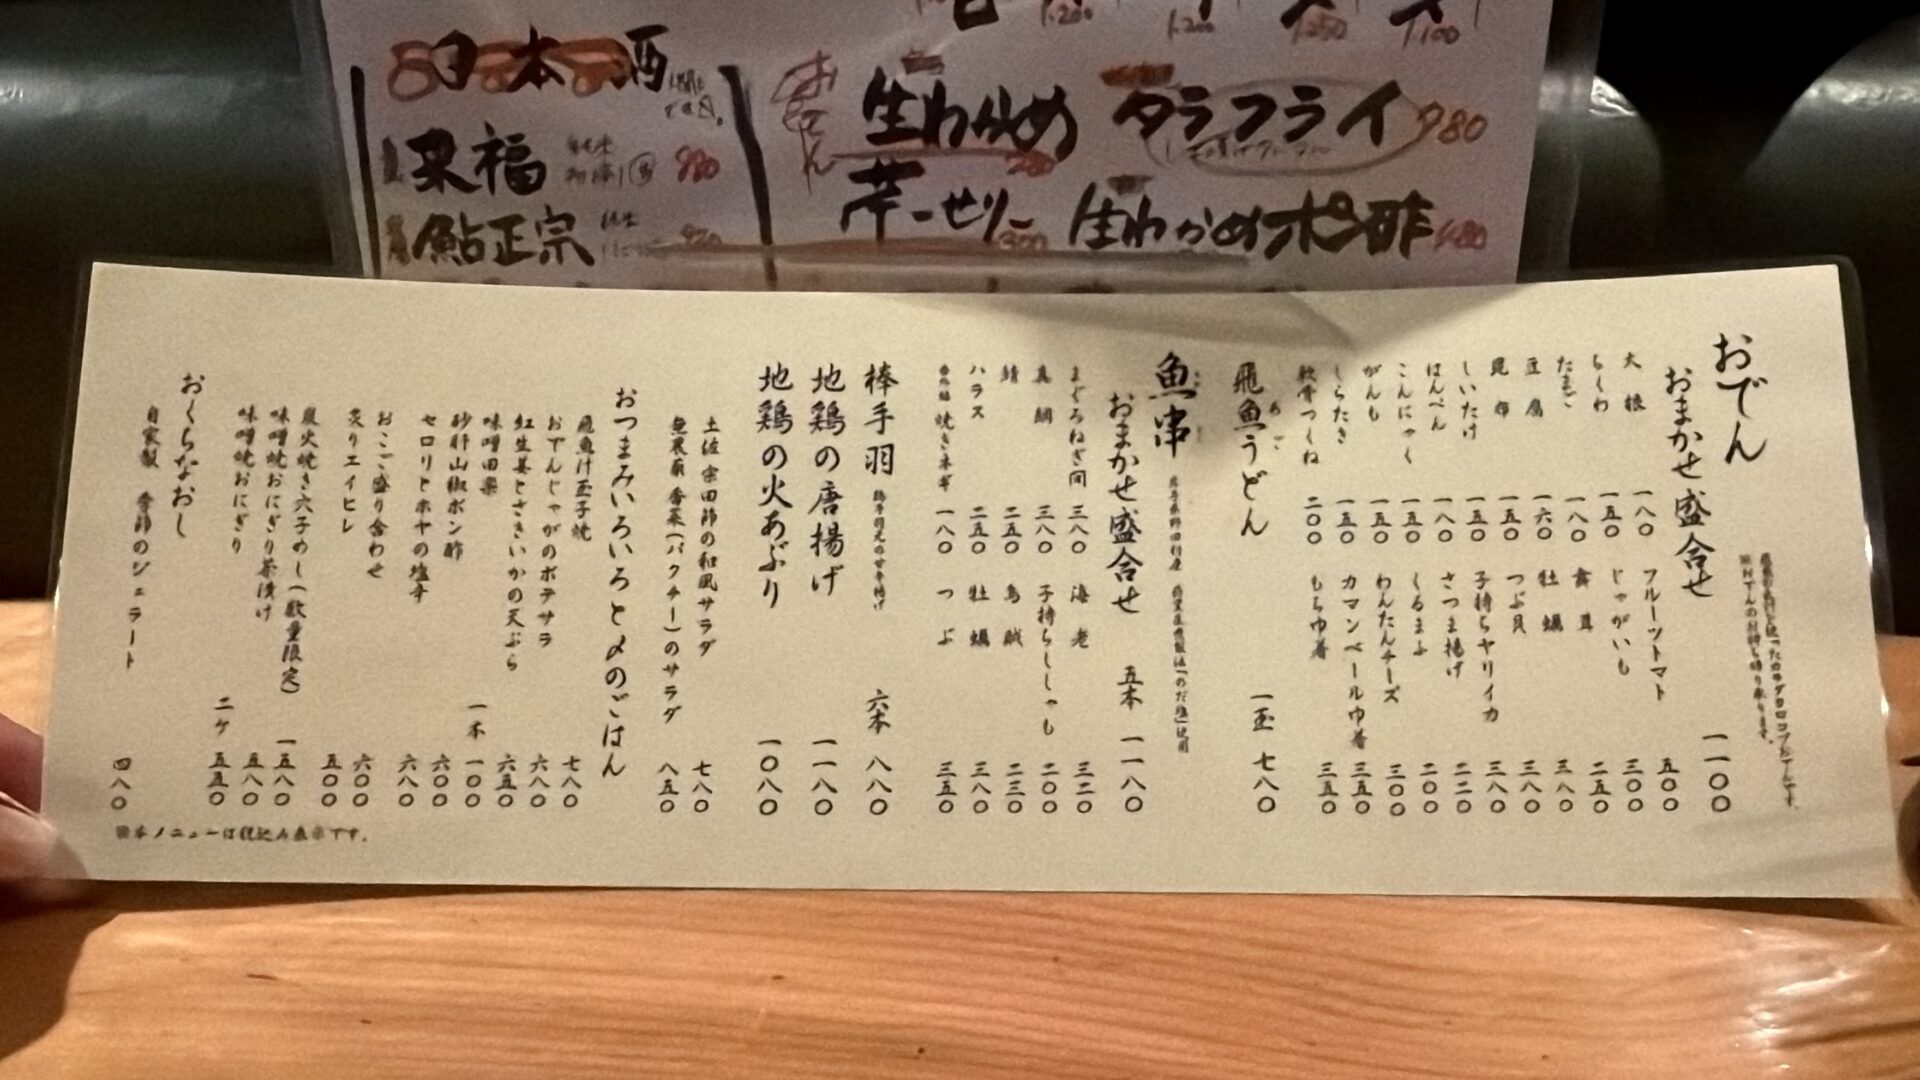 日本酒
来福 980
鮎正宗
おでん
生わかめ 280
タラフライ 980
芹ーせりー 300
生わかめポン酢 480
1,200
1,200
1,250
1,100
おでん
おまかせ盛合せ 一一〇〇
大根 一八〇
ちくわ 一五〇
たまご 一八〇
豆腐 一六〇
昆布 一五〇
しいたけ 一五〇
はんぺん 一八〇
こんにゃく 一五〇
がんも 一五〇
しらたき 一五〇
軟骨つくね 二〇〇
フルーツトマト 五〇〇
じゃがいも 三〇〇
舞茸 二五〇
牡蠣 三八〇
つぶ貝 三八〇
子持ちヤリイカ 三八〇
さつま揚げ 二二〇
くるまふ 二〇〇
わんたんチーズ 三〇〇
カマンベール巾着 三五〇
もち巾着 三五〇
飛魚うどん 一玉 七八〇
あご
魚串
おまかせ盛合せ 五本 一一八〇
まぐろねぎ間 三八〇
真鯛 三八〇
鯖 二五〇
ハラス 二五〇
焼きネギ 一八〇
海老 三二〇
子持ちししゃも 二〇〇
烏賊 二三〇
牡蠣 三八〇
つぶ 三五〇
棒手羽 六本 八八〇
地鶏の唐揚げ 一一八〇
地鶏の火あぶり 一〇八〇
土佐 宗田節の和風サラダ 七八〇
無農薬 香菜(パクチー)のサラダ 八五〇
おつまみいろいろと〆のごはん
飛魚汁玉子焼 七八〇
おでんじゃがのポテサラ 六八〇
紅生姜とさきいかの天ぷら 六五〇
味噌田楽 一本 一〇〇
砂肝山椒ポン酢 六〇〇
セロリとホヤの塩辛 六八〇
おこご盛り合わせ 六〇〇
炙りエイヒレ 五〇〇
炭火焼き穴子めし(数量限定) 一五八〇
味噌焼おにぎり茶漬け 五八〇
味噌焼おにぎり 二ケ 五五〇
おくちなおし
自家製 季節のジェラート 四八〇
※本メニューは税込み表示です。